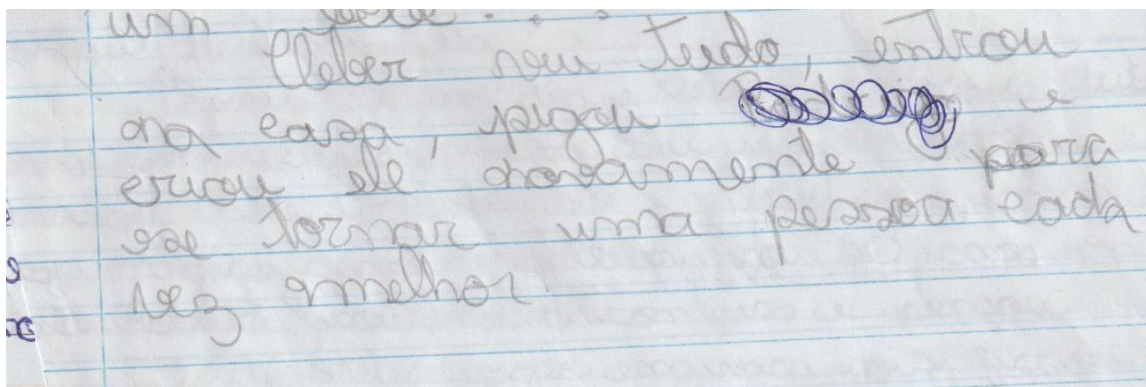 um
Cleber viu tudo, entrou
na casa, pegou e
criou ele novamente para
se tornar uma pessoa cada
vez melhor.